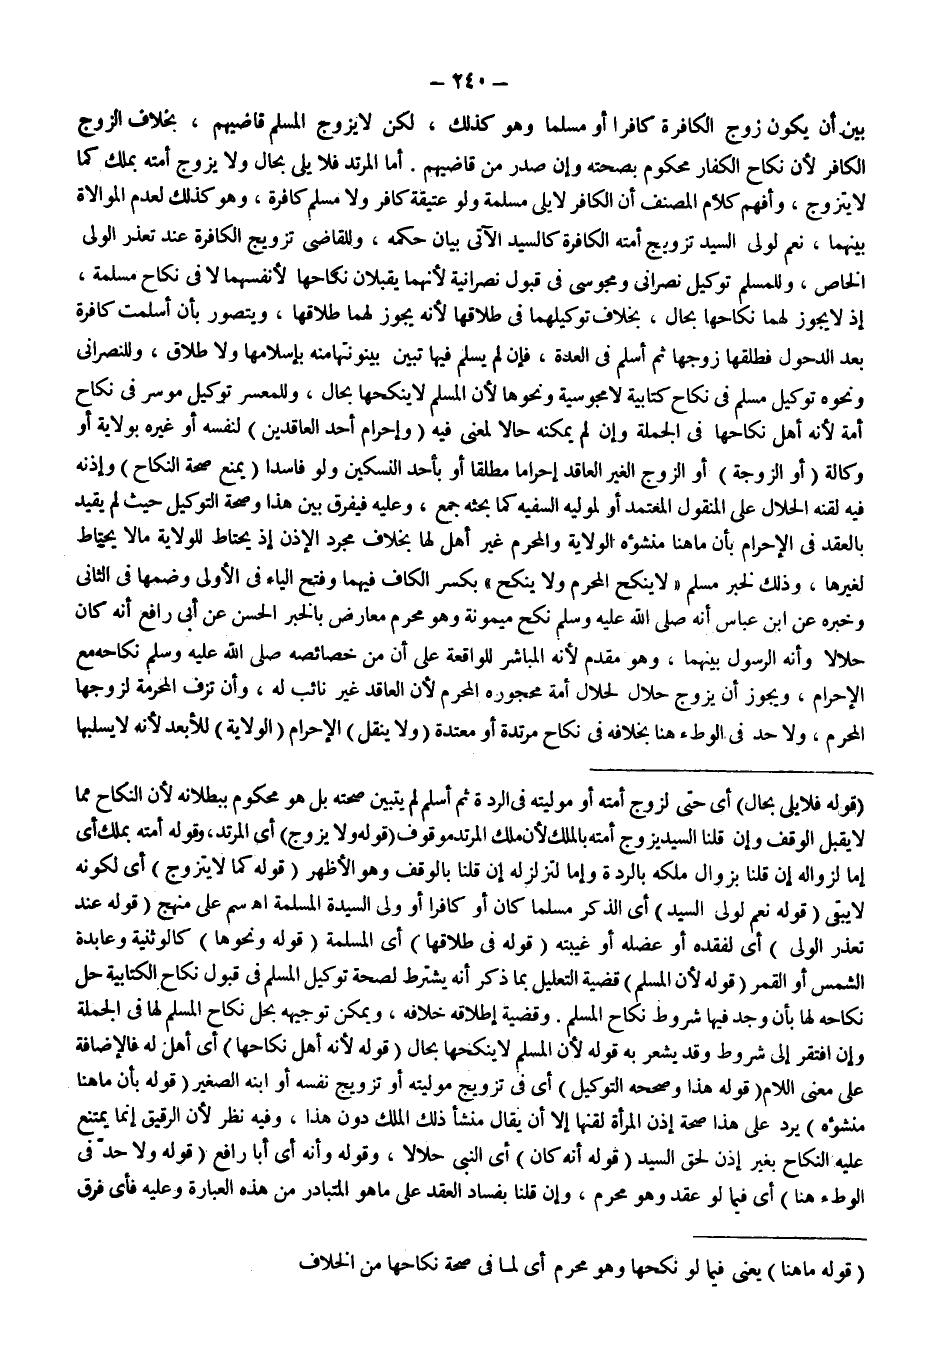 – ٢٤٠ –
بين أن يكون زوج الكافرة كافرا أو مسلما وهو كذلك ، لكن لايزوج المسلم قاضيهم ، بخلاف الزوج
الكافر لأن نكاح الكفار محكوم بصحته وإن صدر من قاضيهم . أما المرتد فلا يلى بحال ولا يزوج أمته بملك كما
لايتزوج ، وأفهم كلام المصنف أن الكافر لايلى مسلمة ولو عتيقة كافر ولا مسلم كافرة ، وهو كذلك لعدم الموالاة
بينهما ، نعم لولى السيد تزويج أمته الكافرة كالسيد الآتى بيان حكمه ، وللقاضى تزويج الكافرة عند تعذر الولى
الخاص ، وللمسلم توكيل نصرانى ومجوسى فى قبول نصرانية لأنهما يقبلان نكاحها لأنفسهما لا فى نكاح مسلمة ،
إذ لايجوز لهما نكاحها بحال ، بخلاف توكيلهما فى طلاقها لأنه يجوز لهما طلاقها ، ويتصور بأن أسلمت كافرة
بعد الدحول فطلقها زوجها ثم أسلم فى العدة ، فإن لم يسلم فيها تبين بينونتهامنه بإسلامها ولا طلاق ، وللنصرانى
ونحوه توكيل مسلم فى نكاح كتابية لامجوسية ونحوها لأن المسلم لاينكحها بحال ، وللمعسر توكيل موسر فى نكاح
أمة لأنه أهل نكاحها فى الجملة وإن لم يمكنه حالا لمعنى فيه ( وإحرام أحد العاقدين ) لنفسه أو غيره بولاية أو
وكالة ( أو الزوجة ) أو الزوج الغير العاقد إحراما مطلقا أو بأحد النسكين ولو فاسدا ( يمنع صحة النكاح ) وإذنه
فيه لقنه الحلال على المنقول المعتمد أو لموليه السفيه كما بحثه جمع ، وعليه فيفرق بين هذا وصحة التوكيل حيث لم يقيد
بالعقد فى الإحرام بأن ماهنا منشؤه الولاية والمحرم غير أهل لها بخلاف مجرد الإذن إذ يحتاط للولاية مالا يحتاط
لغيرها ، وذلك لخبر مسلم « لاينكح المحرم ولا ينكح » بكسر الكاف فيهما وفتح الياء فى الأولى وضمها فى الثانى
وخبره عن ابن عباس أنه صلى الله عليه وسلم نكح ميمونة وهو محرم معارض بالخبر الحسن عن أبى رافع أنه كان
حلالا وأنه الرسول بينهما ، وهو مقدم لأنه المباشر للواقعة على أن من خصائصه صلى الله عليه وسلم نكاحه مع
الإحرام ، ويجوز أن يزوج حلال لحلال أمة محجوره المحرم لأن العاقد غير نائب له ، وأن تزف المحرمة لزوجها
المحرم ، ولا حد فى الوطء هنا بخلافه فى نكاح مرتدة أو معتدة ( ولا ينقل ) الإحرام ( الولاية ) للأبعد لأنه لايسلبها
(قوله فلايلى بحال) أى حتى لزوج أمته أو موليته فى الردة ثم أسلم لم يتبين صحته بل هو محكوم ببطلانه لأن النكاح مما
لايقبل الوقف وإن قلنا السيد يزوج أمته بالملك لأن ملك المرتد موقوف (قوله ولا يزوج) أى المرتد، وقوله أمته بملك أى
إما لزواله إن قلنا بزوال ملكه بالردة وإما لتزلزله إن قلنا بالوقف وهو الأظهر ( قوله كما لايتزوج ) أى لكونه
لايبقى ( قوله نعم لولى السيد ) أى الذكر مسلما كان أو كافرا أو ولى السيدة المسلمة اه سم على منهج ( قوله عند
تعذر الولى ) أى لفقده أو عضله أو غيبته ( قوله فى طلاقها ) أى المسلمة ( قوله ونحوها ) كالوثنية وعابدة
الشمس أو القمر ( قوله لأن المسلم ) قضية التعليل بما ذكر أنه يشترط لصحة توكيل المسلم فى قبول نكاح الكتابية حل
نكاحه لها بأن وجد فيها شروط نكاح المسلم . وقضية إطلاقه خلافه ، ويمكن توجيهه بحل نكاح المسلم لها فى الجملة
وإن افتقر إلى شروط وقد يشعر به قوله لأن المسلم لاينكحها بحال ( قوله لأنه أهل نكاحها ) أى أهل له فالإضافة
على معنى اللام ( قوله هذا وصححه التوكيل ) أى فى تزويج موليته أو تزويج نفسه أو ابنه الصغير ( قوله بأن ماهنا
منشؤه ) يرد على هذا صحة إذن المرأة لقنها إلا أن يقال منشأ ذلك الملك دون هذا ، وفيه نظر لأن الرقيق إنما يمتنع
عليه النكاح بغير إذن لحق السيد ( قوله أنه كان ) أى النبى حلالا ، وقوله وأنه أى أبا رافع ( قوله ولا حدّ فى
الوطء هنا ) أى فيما لو عقد وهو محرم ، وإن قلنا بفساد العقد على ماهو المتبادر من هذه العبارة وعليه فأى فرق
( قوله ماهنا ) يعنى فيما لو نكحها وهو محرم أى لما فى صحة نكاحها من الخلاف